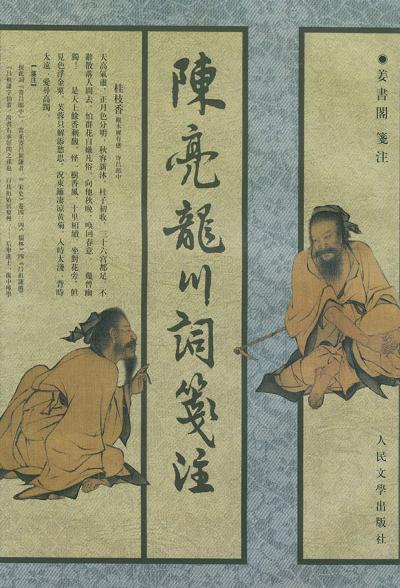 ●姜書閣 箋注
人民文學出版社
陳亮龍川詞箋注
桂枝香 觀木樨有感 寄呂郎中
天高氣肅,正月色分明,秋容新沐。桂子初收,三十六宮都足。不
辭散落人間去,怕群花自嫌凡俗。向他秋晚,喚回春意,幾曾幽
獨! 是天上餘香剩馥。怪一樹香風,十里相續。坐對花旁,但
見色浮金粟。芙蓉只解添愁思,況東籬淒涼黃菊。入時太淺,背時
太遠,愛尋高躅。
【箋注】